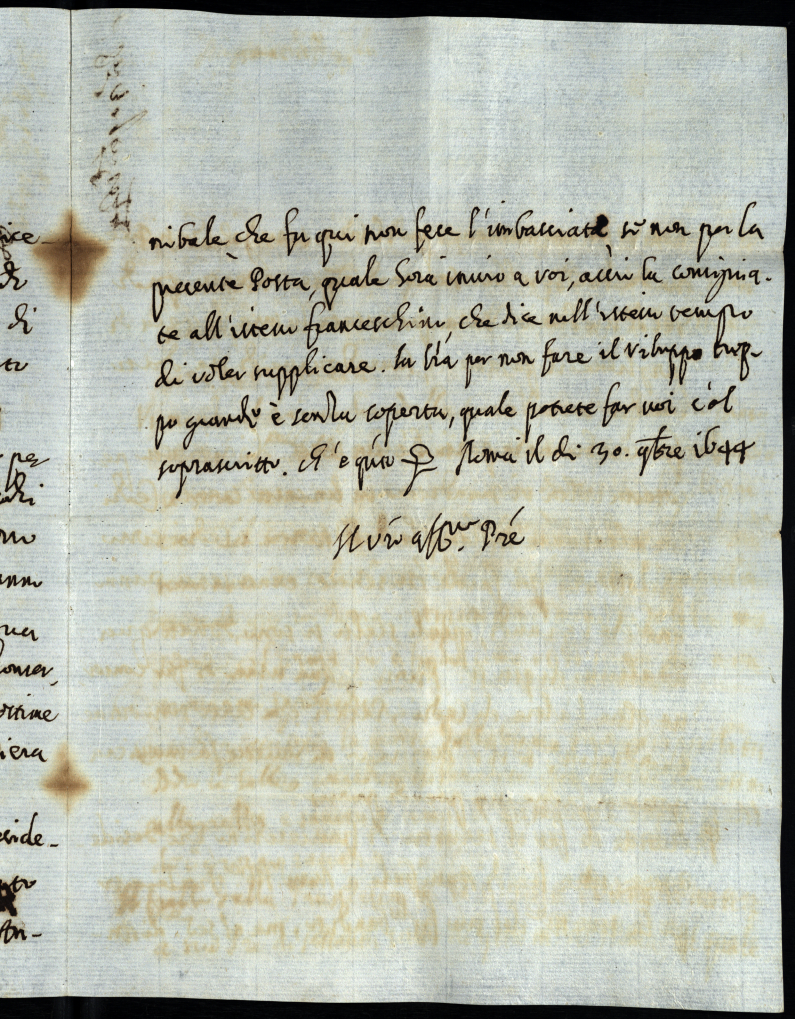 nibale che fu qui non fece l'imbasciata se non per la
presente Posta, quale hora invio a voi, acciò la consegnia-
te all'istesso franceschini, che dice nell'istesso tempo
di voler supplicare. la l'ra per non fare il viluppo trop-
po grande è senza coperta, quale potete far voi col
soprascritto. ch'è q'to Roma il dì 30. 9bre 1644
Il vr̃o aff.mo Pre
ice-
di
di
to
per
no
anni
conser,
ottime
iera
cide-
to
An-